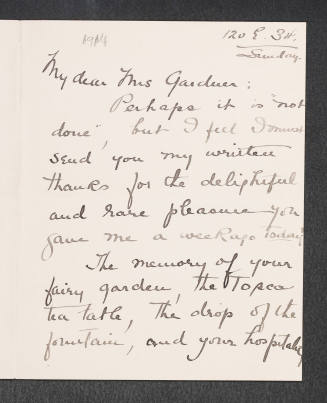 1914
120 E. 34.
Sunday.
My dear Mrs Gardner:
Perhaps it is "not
done", but I feel I must
send you my written
thanks for the delightful
and rare pleasure you
gave me a week ago today.
The memory of your
fairy garden, the Tosca
tea table, the drop of the
fountain, and your hospitality